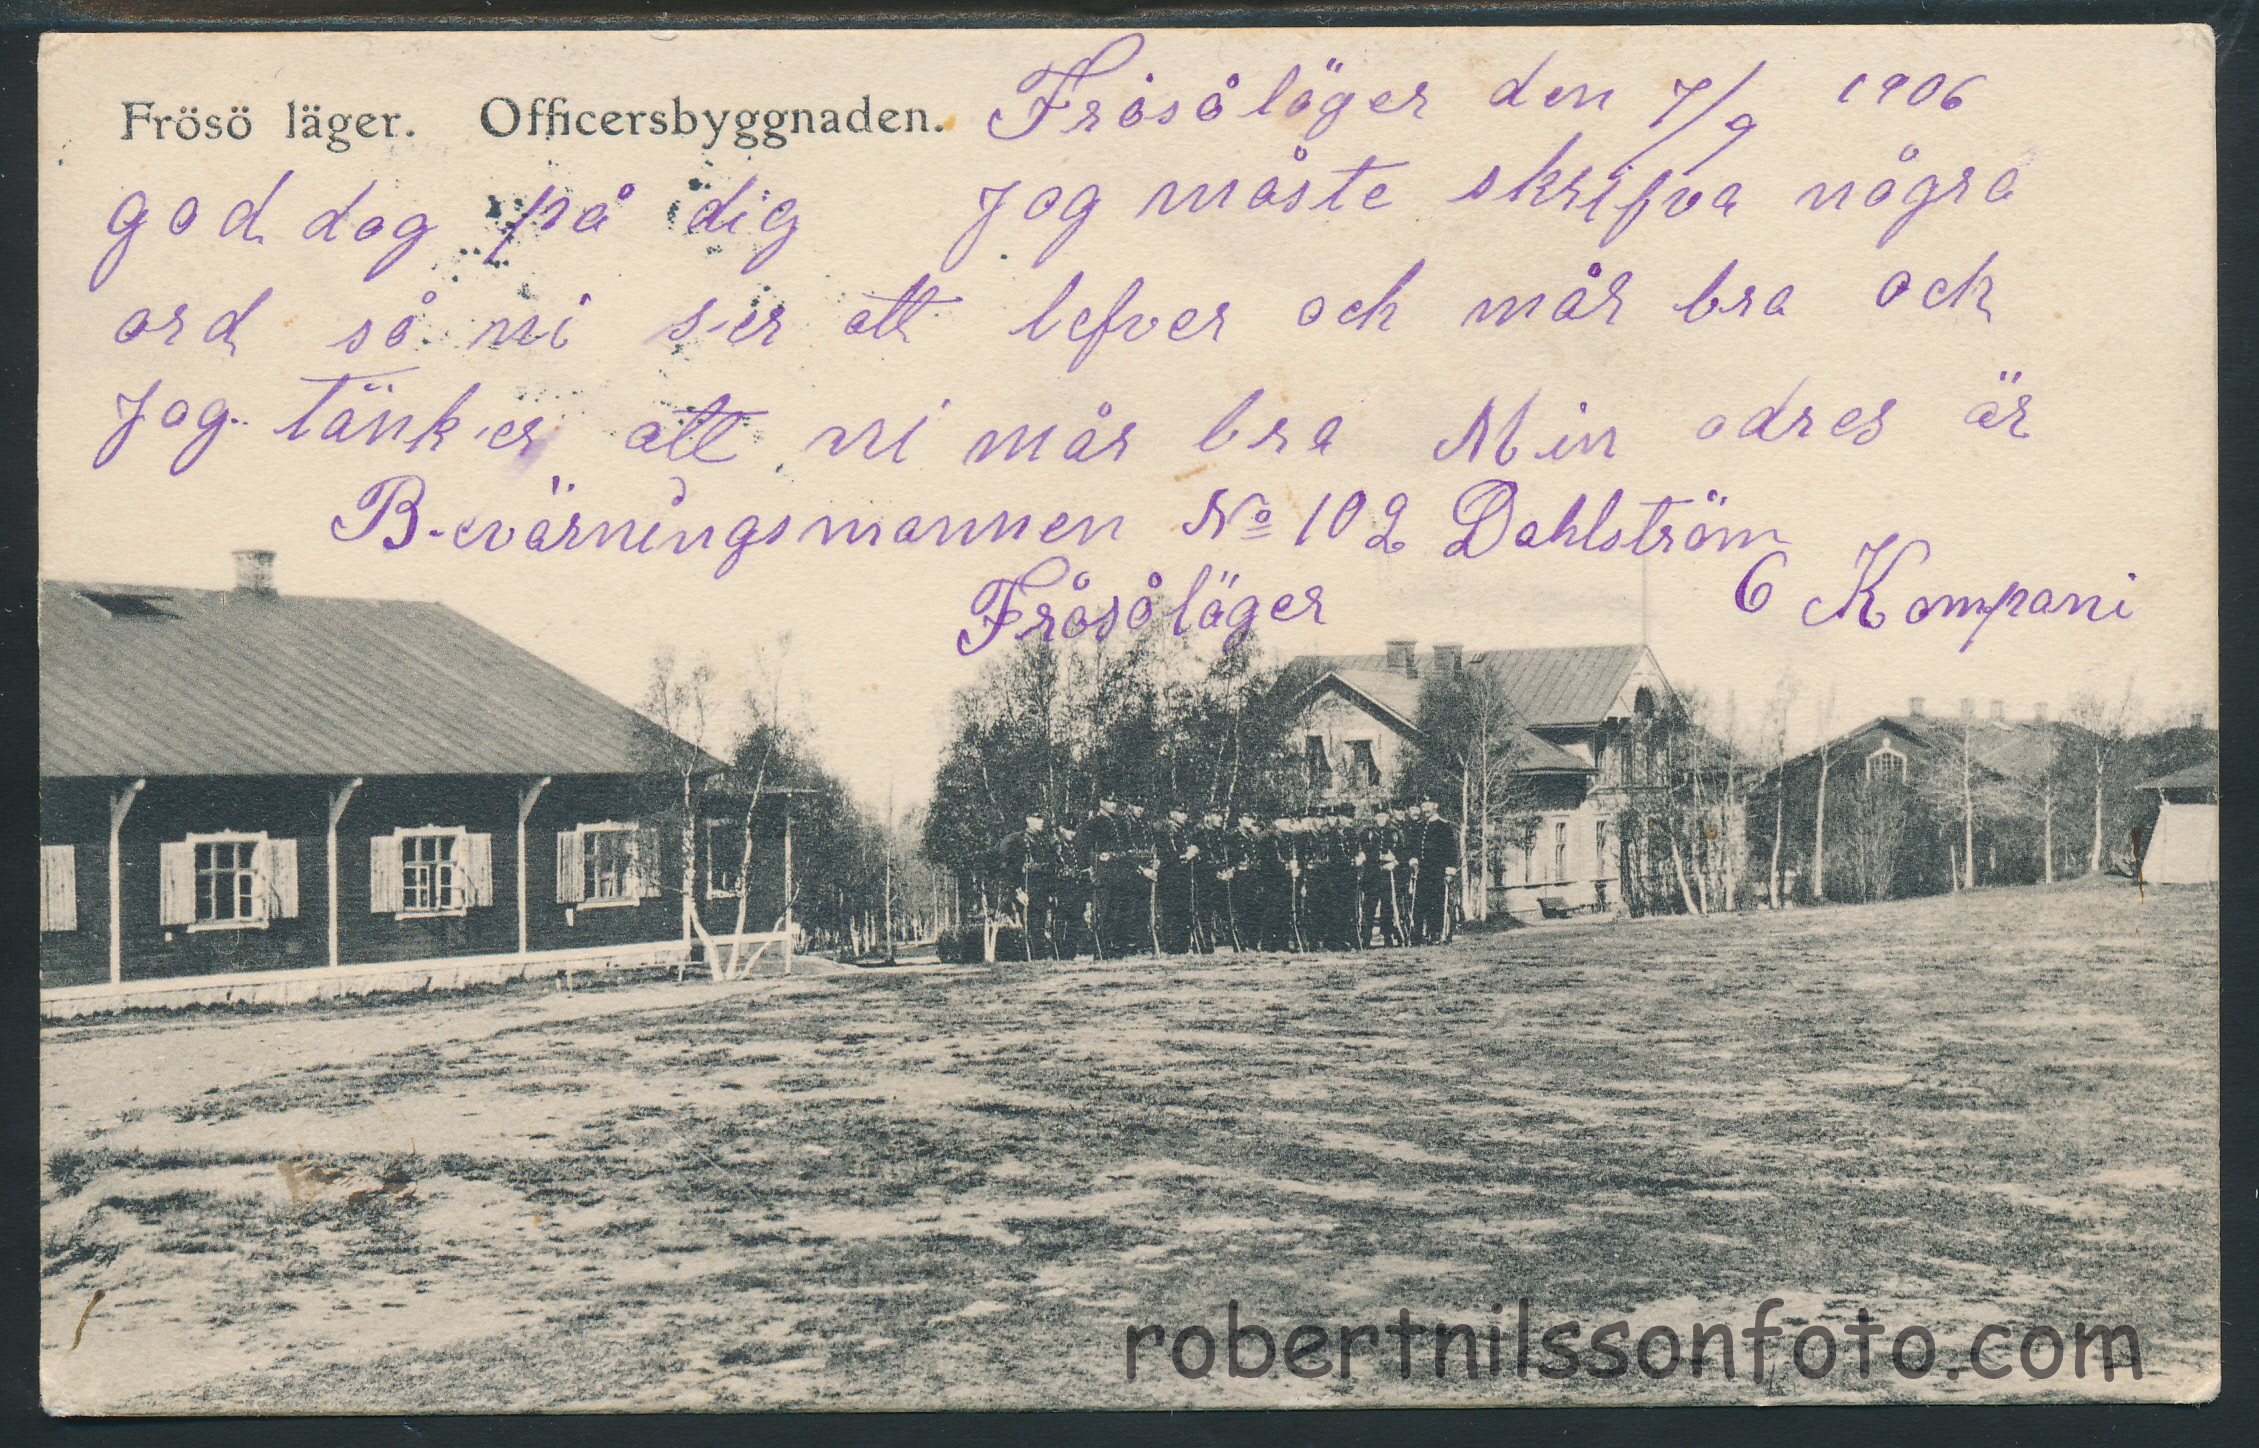 Frösö läger. Officersbyggnaden.
Frösöläger den 7/9 1906
god dag på dig Jag måste skrifva några
ord så ni ser att lefver och mår bra och
Jag tänker att ni mår bra Min adres är
Bevärningsmannen No 102 Dahlström
6 Kompani
Frösöläger
robertnilssonfoto.com